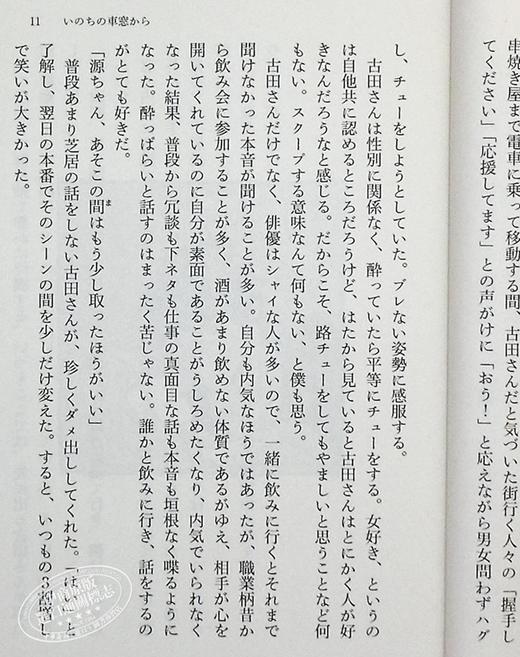 串焼き屋まで電車に乗って移動する間、古田さんだと気づいた街行く人々の「握手し
てください」「応援してます」との声がけに「おう！」と応えながら男女問わずハグ
11 いのちの車窓から
し、チューをしようとしていた。ブレない姿勢に感服する。
古田さんは性別に関係なく、酔っていたら平等にチューをする。女好き、というの
は自他共に認めるところだろうけど、はたから見ていると古田さんはとにかく人が好
きなんだろうなと感じる。だからこそ、路チューをしてもやましいと思うことなど何
もない。スクープする意味なんて何もない、と僕も思う。
古田さんだけでなく、俳優はシャイな人が多いので、一緒に飲みに行くとそれまで
聞けなかった本音が聞けることが多い。自分も内気なほうではあったが、職業柄昔か
ら飲み会に参加することが多く、酒があまり飲めない体質であるがゆえ、相手が心を
開いてくれているのに自分が素面であることがうしろめたくなり、内気でいられなく
なった結果、普段から冗談も下ネタも仕事の真面目な話も本音も垣根なく喋るように
なった。酔っぱらいと話すのはまったく苦じゃない。誰かと飲みに行き、話をするの
がとても好きだ。
「源ちゃん、あそこの間はもう少し取ったほうがいい」
ま
普段あまり芝居の話をしない古田さんが、珍しくダメ出ししてくれた。「は
了解し、翌日の本番でそのシーンの間を少しだけ変えた。すると、いつもの3割増し
で笑いが大きかった。